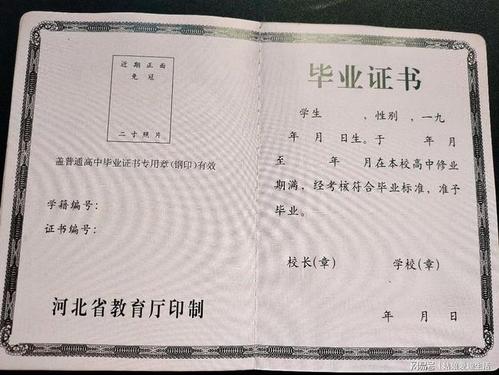 近期正面
免冠
二寸照片
盖普通高中毕业证书专用章(钢印)有效
学籍编号:
证书编号:
河北省教育厅印制
毕业证书
学生 ,性别 ,一九
年 月 日生。于 年 月
至 年 月在本校高中修业
期满,经考核符合毕业标准,准予
毕业。
校长(章) 学校(章)
年 月 日